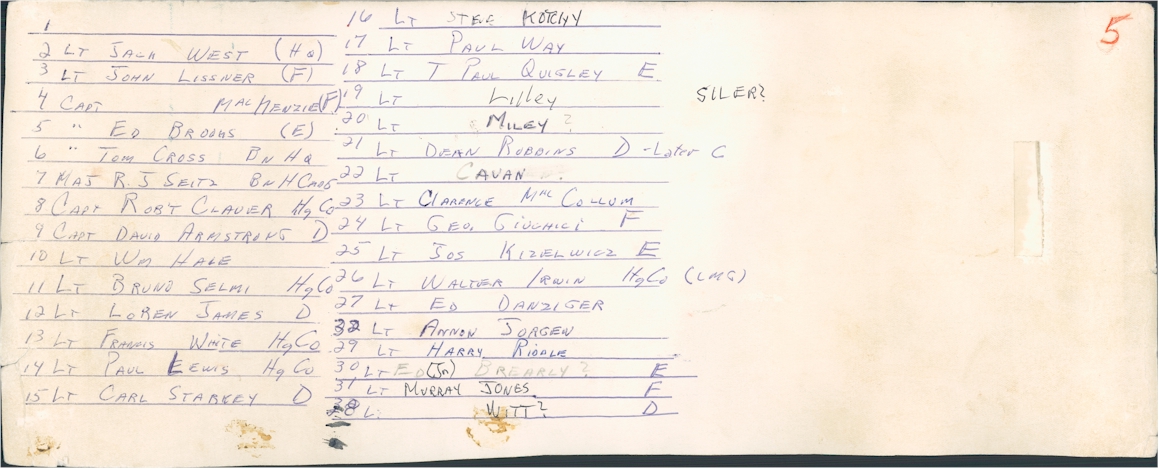 1
2 LT JACK WEST (HQ)
3 LT JOHN LISSNER (F)
4 CAPT MACKENZIE (F)
5 " ED BROOKS (E)
6 " TOM CROSS BN HQ
7 MAJ R. J SEITZ BN H
8 CAPT ROBT CLAVER HqCo
9 CAPT DAVID ARMSTRONG D
10 LT WM HALE
11 LT BRUNO SELMI HqCo
12 LT LOREN JAMES D
13 LT FRANCIS WHITE HqCo
14 LT PAUL LEWIS HqCo
15 LT CARL STARKEY D
16 LT STEVE KOTCHY
17 LT PAUL WAY
18 LT T PAUL QUIGLEY E
19 LT Lilley
SILER?
20 LT MILEY ?
21 LT DEAN ROBBINS D - Later C
22 LT CAVAN
23 LT CLARENCE MAC COLLUM
24 LT GEO. GIUCHICI F
25 LT JOS KIZELWICZ E
26 LT WALTER IRWIN HqCo (LMG)
27 LT ED DANZIGER
32 LT ANNON JORGEN
29 LT HARRY RIDDLE
30 LT ED (Jn) BREARLY? E
31 LT MURRAY JONES F
28 L WITT? D
5